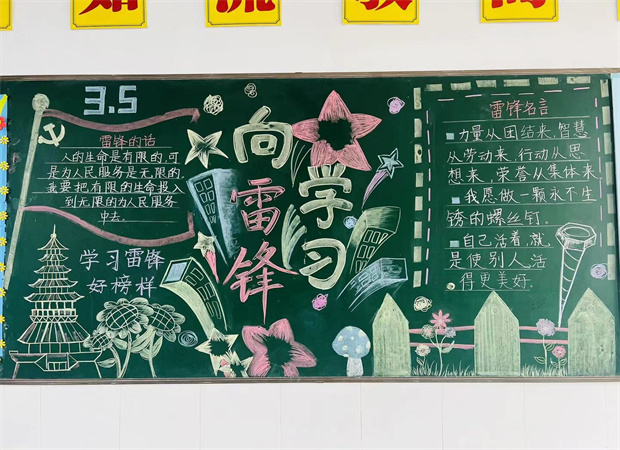 流
3.5
雷锋的话
人的生命是有限的,可
是为人民服务是无限的,
我要把有限的生命投入
到无限的为人民服务
中去.
学习雷锋
好榜样
向雷锋
学习
雷锋名言
力量从团结来,智慧
从劳动来,行动从思
想来,荣誉从集体来
我愿做一颗永不生
锈的螺丝钉.
自己活着,就
是使别人活
得更美好.